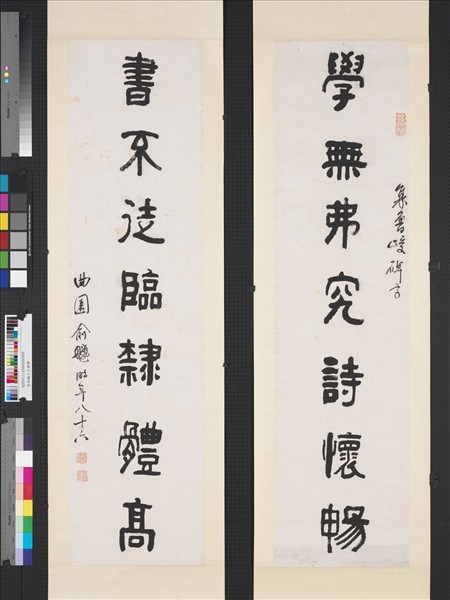 集魯峻碑字
學無弗究詩懷暢
書不徒臨隸體高
曲園俞樾時年八十六